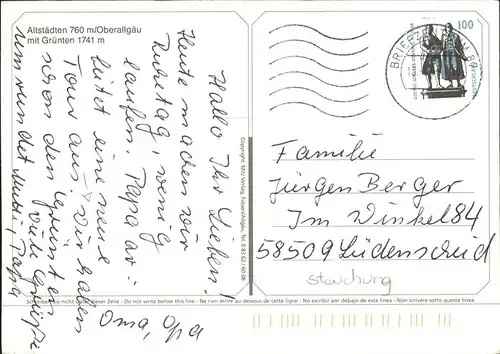 Altstädten 760 m/Oberallgäu
mit Grünten 1741 m
Hallo Ihr Lieben!
Heute machen wir
Ruhetag wenig
laufen. Papa ar-
beitet eine neue
Tour aus. Wir haben
schon den Grünten
umrundet
Viele Grüße
Mutti, Papa
Oma, Opa
Copyright: Milz Verlag, Füssen/Allgäu, Tel. 0 83 62 / 60 08
100
BRIEFZENTRUM 89
Familie
Jürgen Berger
Im Winkel 84
58509 Lüdenscheid
Stauchung
Schreiben Sie nicht unter dieser Zeile - Do not write below this line - Ne rien écrire au-dessous de cette ligne - No escribir por debajo de esta linea - Non scrivere sotto questa linea